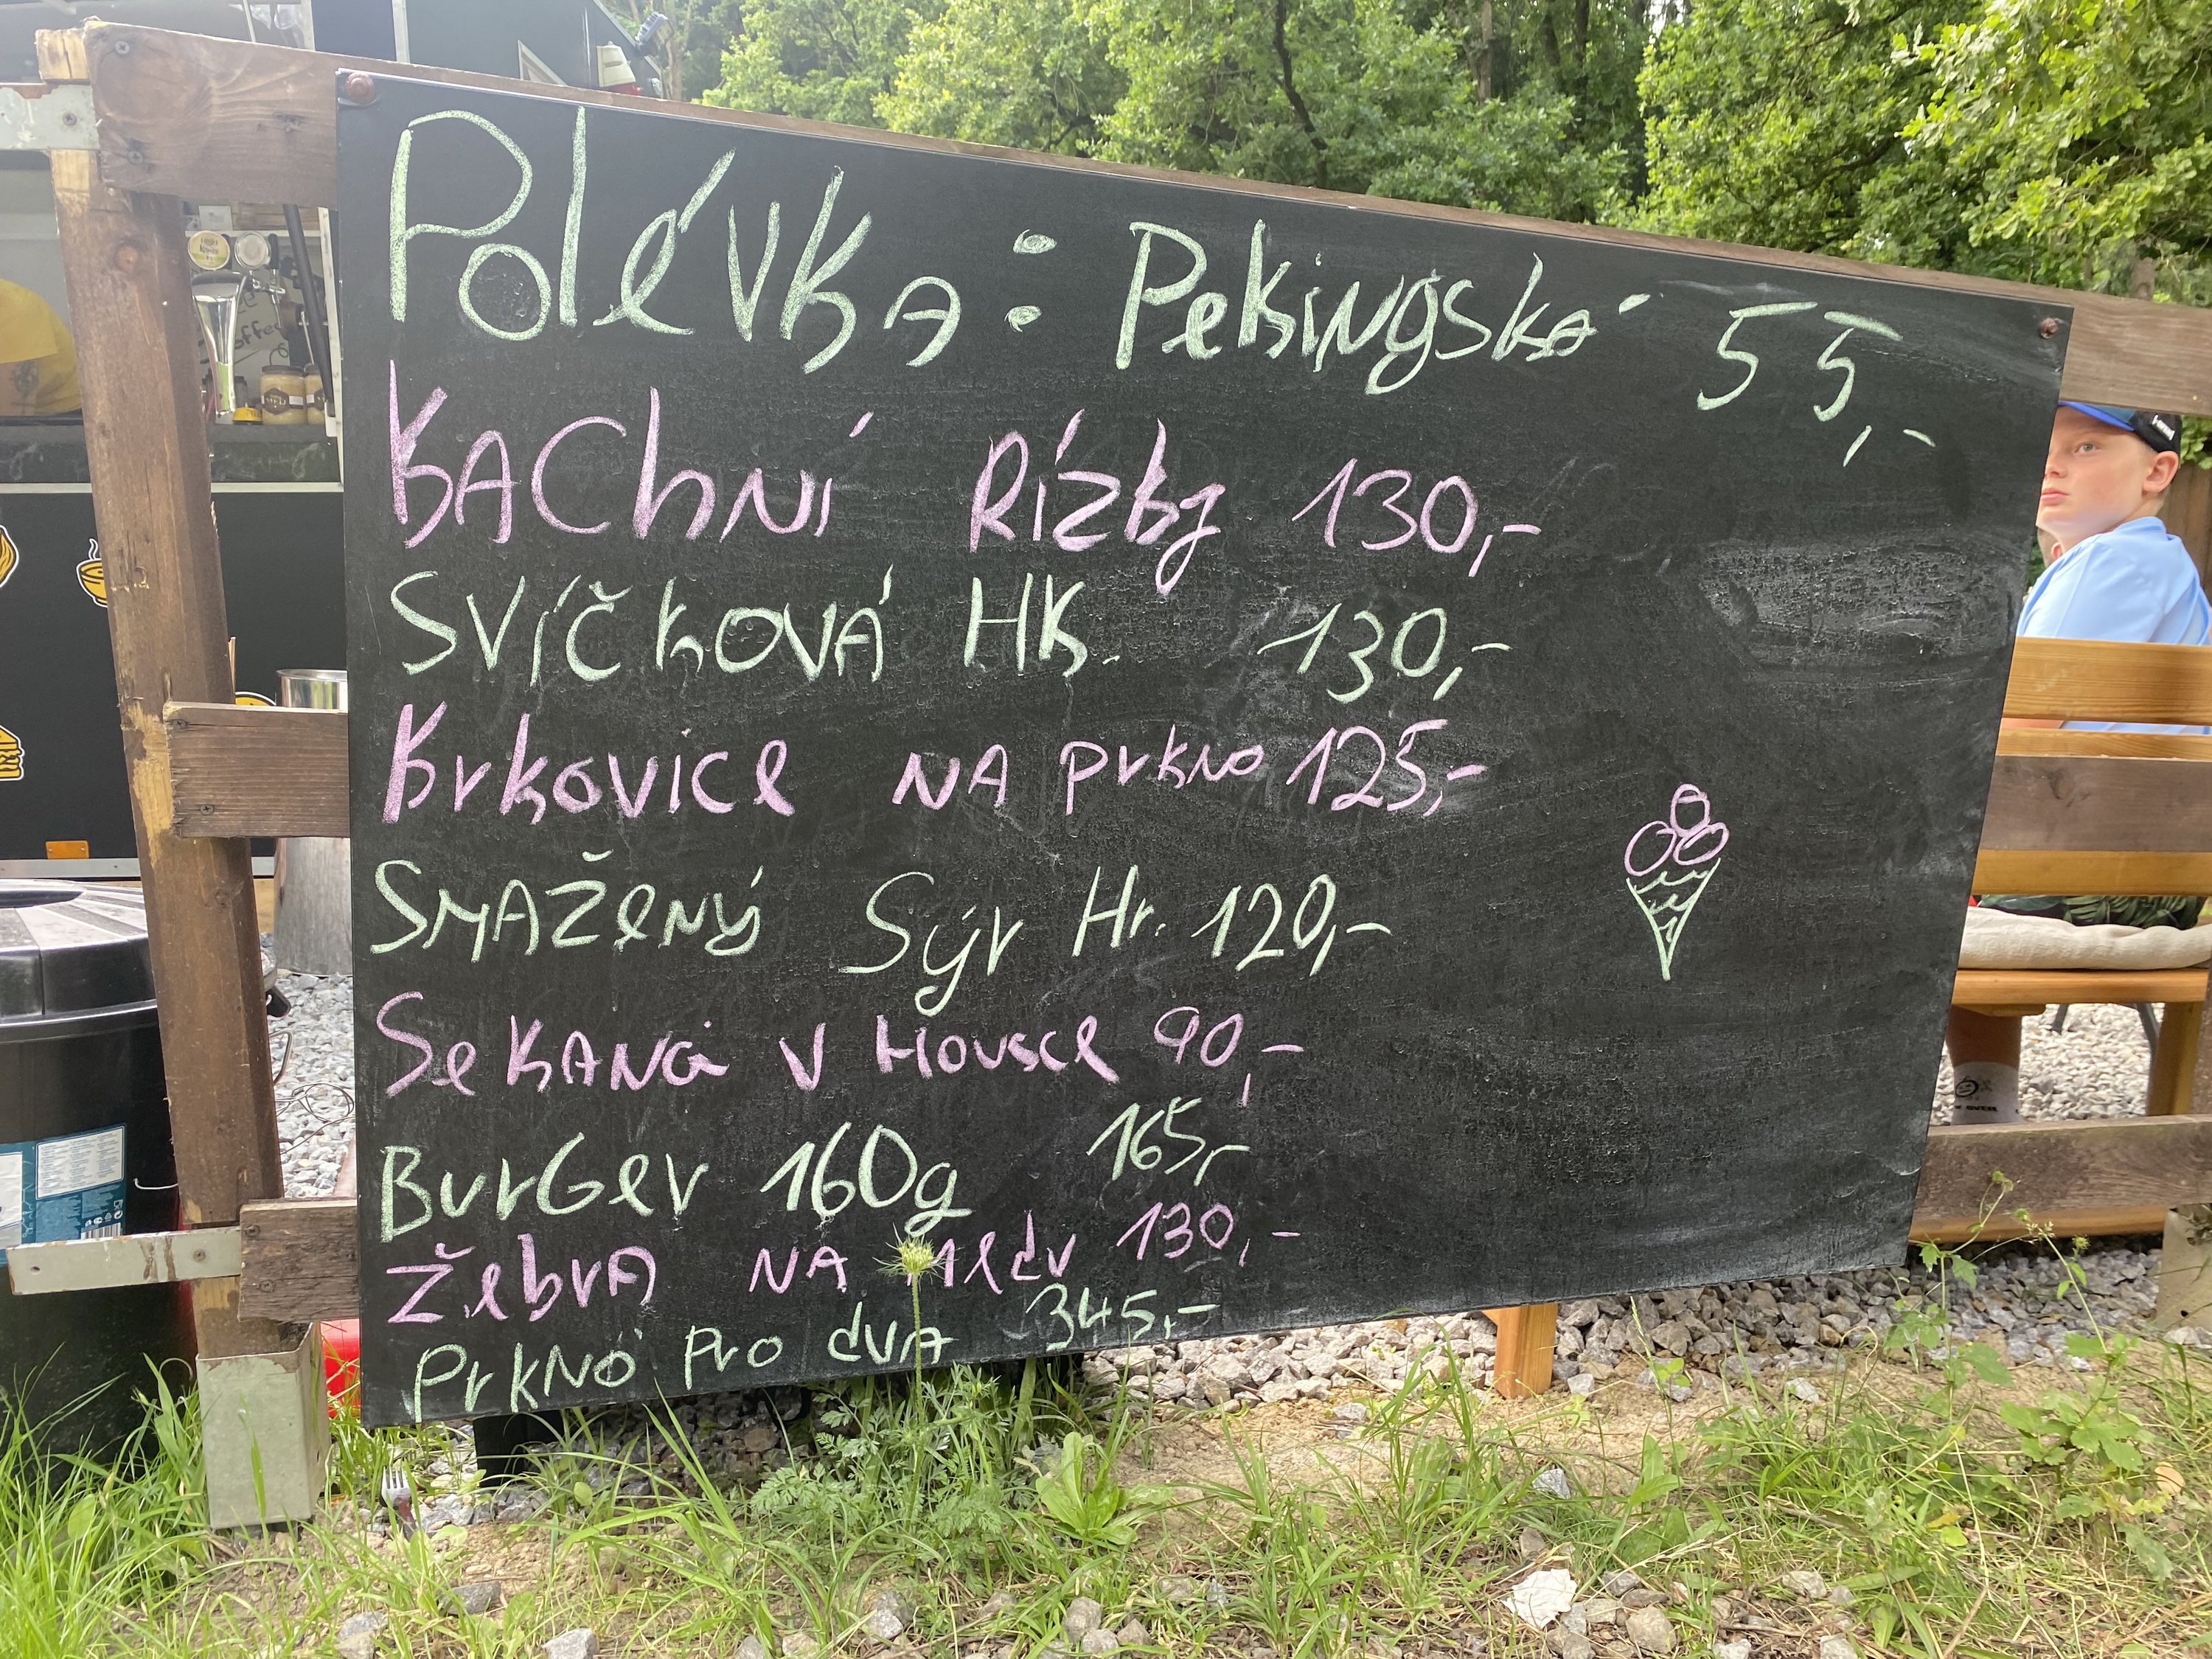 Polévka: Pekingská 55,-
Kachní Rízky 130,-
Svíčková HK. 130,-
Krkovice na prkno 125,-
Smažený Sýr Hr. 120,-
Sekaná v Housce 90,-
BurGer 160g 165,-
Žebra na medu 130,-
Prknó pro dva 345,-